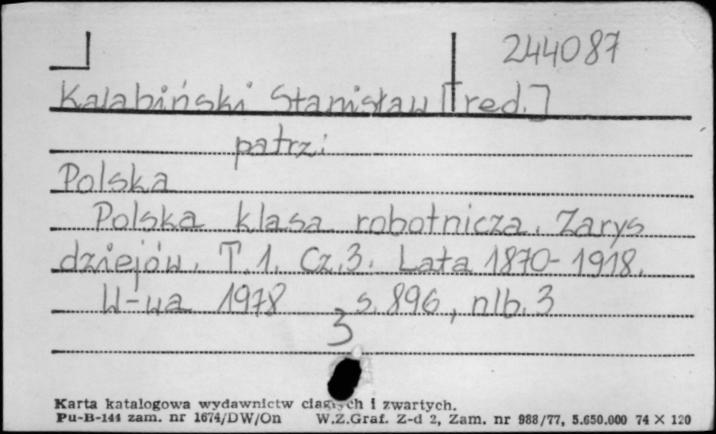 244087
Kalabiński Stanisław [red.]
patrz:
Polska
Polska klasa robotnicza. Zarys
dziejów. T.1. Cz.3. Lata 1870-1918.
W-wa 1978 s. 896, nlb. 3
3
Karta katalogowa wydawnictw ciągłych i zwartych.
Pu-B-144 zam. nr 1674/DW/On W.Z.Graf. Z-d 2, Zam. nr 988/77, 5.650.000 74 X 120